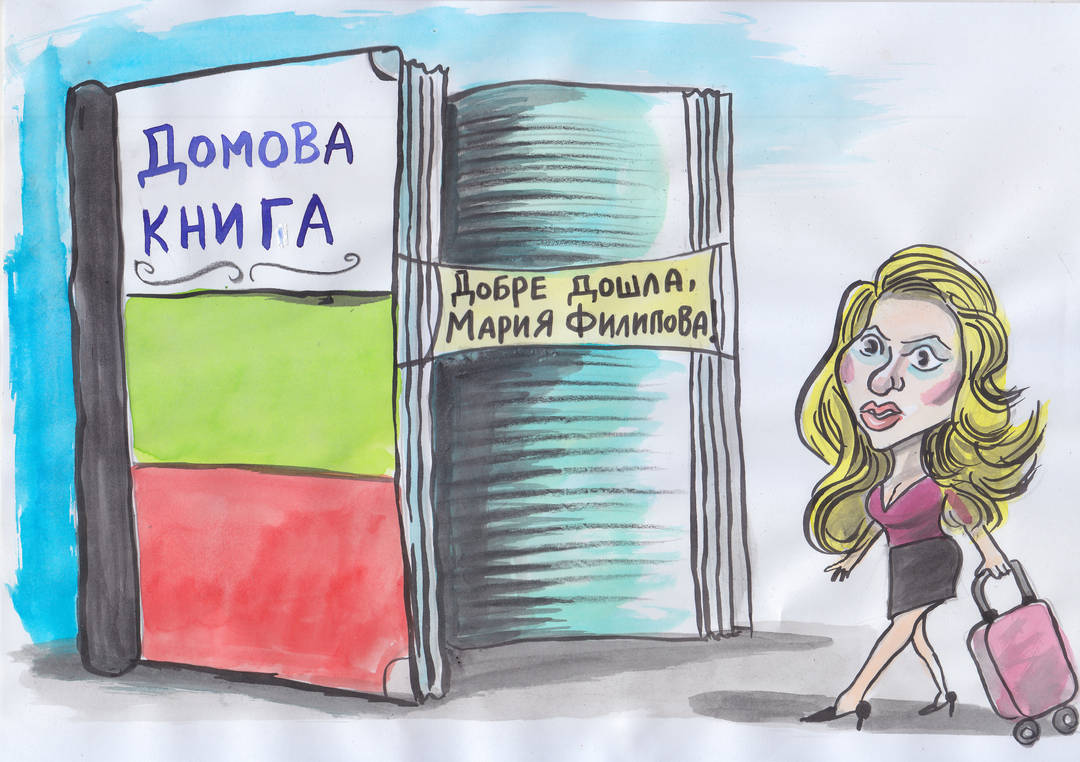 ДОМОВА
КНИГА
ДОБРЕ ДОШЛА,
МАРИЯ ФИЛИПОВА!